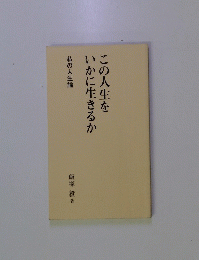 この人生を
いかに生きるか
私の人生論
著